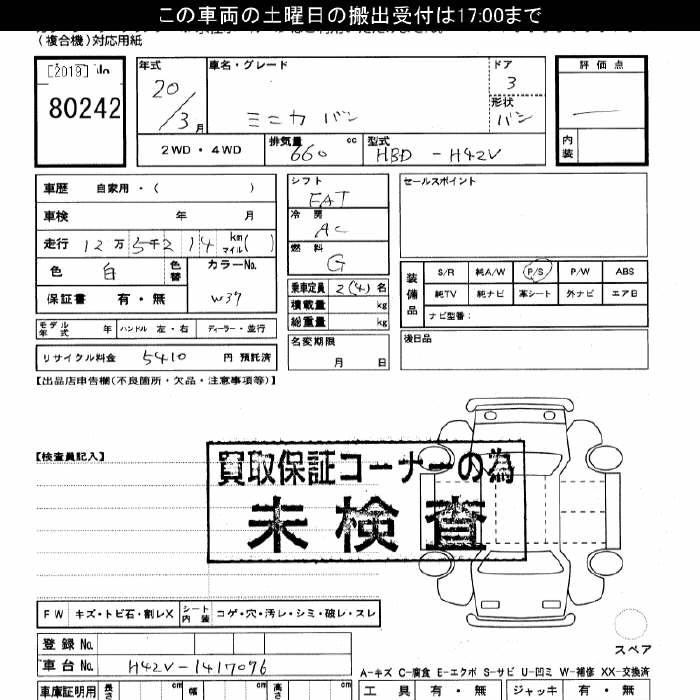 この車両の土曜日の搬出受付は17:00まで
(複合機)対応用紙
[2019]
80242
年式 20/3月
車名・グレード ミニカ バン
ドア 3
形状 バン
評価点 —
内装
2WD・4WD
排気量 660 cc
型式 HBD-H42V
車歴 自家用・( )
車検 年 月
走行 12万5千214 km マイル( )
色 白 色替
カラーNo. W37
保証書 有・無
モデル年式 年 ハンドル 左・右 ディーラー・並行
リサイクル料金 5410 円 預託済
シフト FAT
冷房 AC
燃料 G
乗車定員 2(4)名
積載量 kg
総重量 kg
名変期限 月 日
セールスポイント
装備品
S/R 純A/W P/S P/W ABS
純TV 純ナビ 革シート 外ナビ エアB
ナビ型番:
後日品
【出品店申告欄(不良箇所・欠品・注意事項等)】
【検査員記入】
買取保証コーナーの為
未検査
FW キズ・トビ石・割レX シート内装 コゲ・穴・汚レ・シミ・破レ・スレ
登録No.
車台No. H42V-1417096
スペア
A-キズ C-腐食 E-エクボ S-サビ U-凹ミ W-補修 XX-交換済
車庫証明用 長さ cm 幅 cm 高さ cm
工具 有・無 ジャッキ 有・無